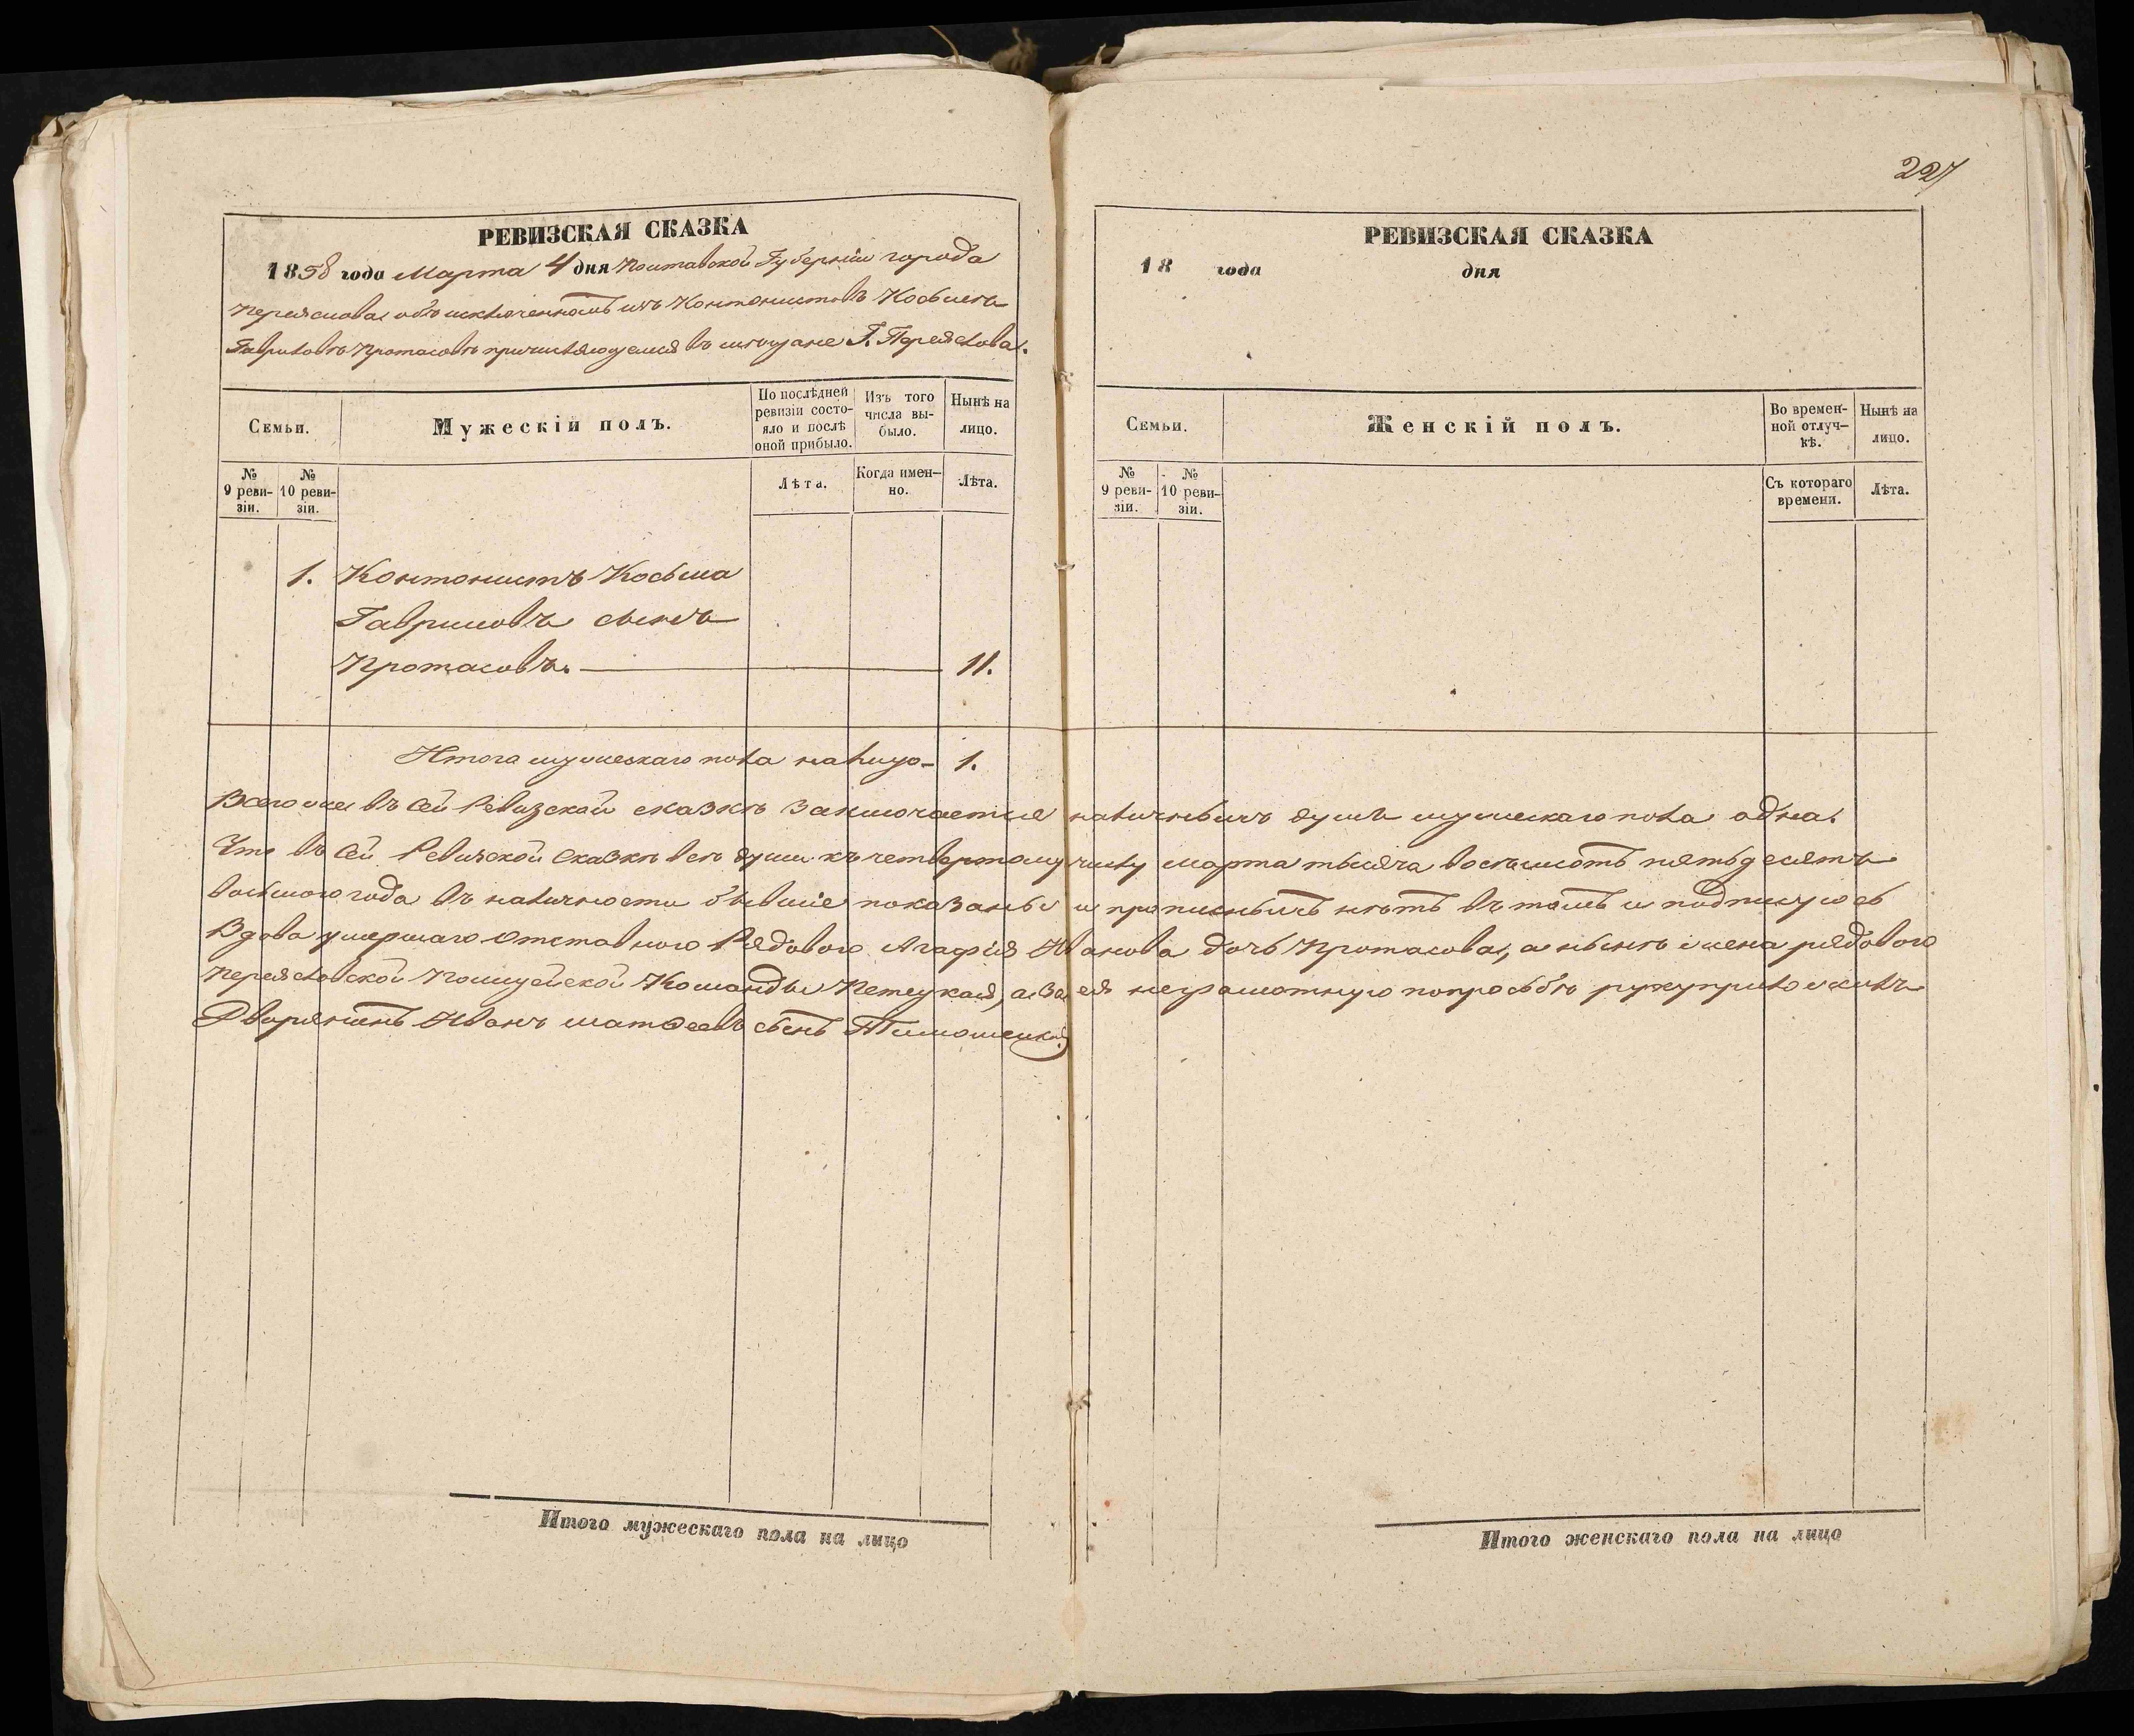 227
РЕВИЗСКАЯ СКАЗКА
1858 года Марта 4 дня Полтавской Губерніи города
Переяслова объ исключенномъ изъ Контонистовъ Косьмѣ
Гавриловѣ Протасовѣ причисляющемся въ мещане Г. Переяслова.
Семьи.
Мужескій полъ.
По послѣдней ревизіи состояло и послѣ оной прибыло.
Изъ того числа выбыло.
Нынѣ на лицо.
№ 9 ревизіи.
№ 10 ревизіи.
Лѣта.
Когда именно.
Лѣта.
1. Контонистъ Косьма
Гавриловъ сынъ
Протасовъ. 11.
Итого мужескаго пола на лицо 1.
РЕВИЗСКАЯ СКАЗКА
18 года дня
Семьи.
Женскій полъ.
Во временной отлучкѣ.
Нынѣ на лицо.
№ 9 ревизіи.
№ 10 ревизіи.
Съ котораго времени.
Лѣта.
Всего же въ сей Ревизской сказкѣ заключается наличныхъ душъ мужескаго пола одна.
Что въ сей Ревизской сказкѣ все души къ четвертому числу марта тысяча восемьсотъ пятьдесятъ
восьмого года въ наличности бывшіе показаны и прописныхъ нѣтъ въ томъ и подписуюсь
Вдова умершаго Отставного Рядового Агафія Иванова дочь Протасова, а нынѣ жена рядового
Переясловской Полицейской Команды Петецкая, а за ея неграмотную по просьбѣ руку приложилъ
Дворянинъ Иванъ Матвеевъ сынъ Тимошецкій
Итого мужескаго пола на лицо
Итого женскаго пола на лицо